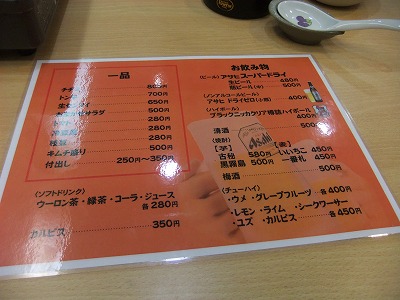 一品
800円
700円
650円
500円
280円
280円
280円
キムチ盛り 500円
付出し 250円〜350円
(ソフトドリンク)
ウーロン茶・緑茶・コーラ・ジュース
各280円
カルピス 350円
お飲み物
(ビール)アサヒスーパードライ
生ビール 480円
瓶ビール(中) 500円
(ノンアルコールビール)
アサヒ ドライゼロ(小瓶) 400円
(ハイボール)
ブラックニッカクリア 樽詰ハイボール
400円
清酒 500円
(焼酎)
【芋】
古秘 580円
黒霧島 500円
【麦】
いいちこ 450円
一番札 450円
梅酒 500円
(チューハイ)
・ウメ・グレープフルーツ・各400円
・レモン・ライム・シークワーサー
・ユズ・カルピス 各450円